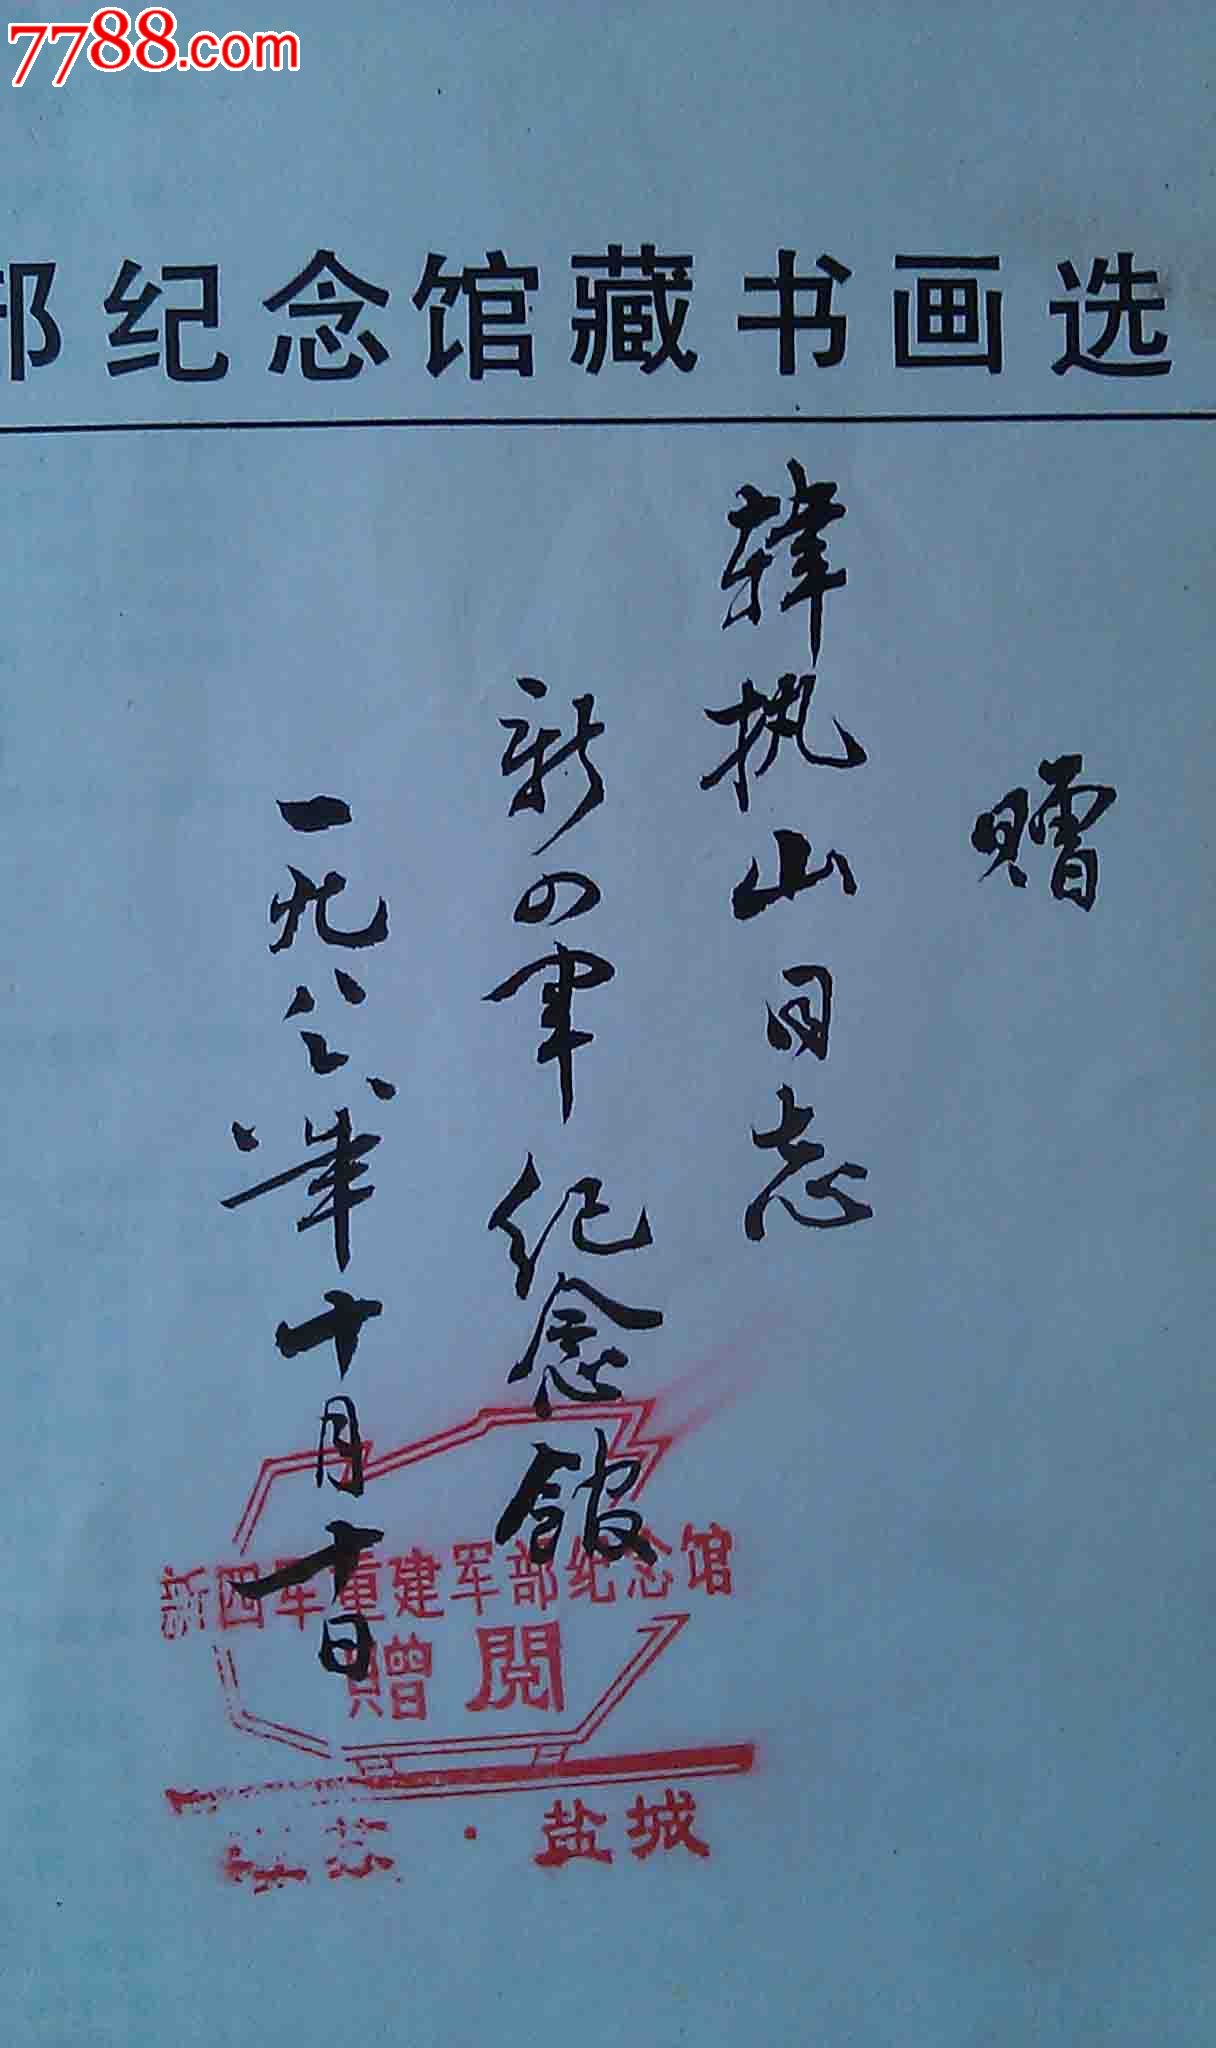 7788.com
部纪念馆藏书画选
赠
韩执山同志
新四军纪念馆
一九八八年十月十日
新四军重建军部纪念馆
赠閱
江苏·盐城